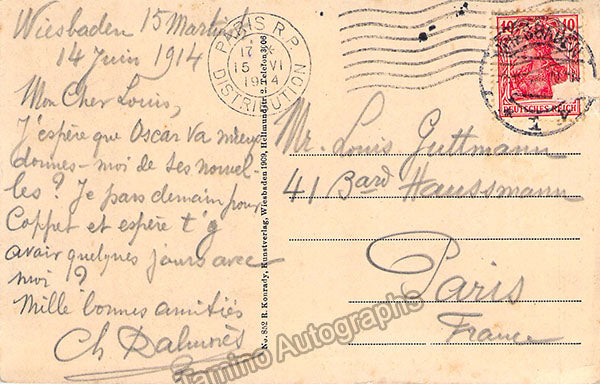 Wiesbaden 15 Martinst
14 Juin 1914
Mon Cher Louis,
J'espère que Oscar va mieux
donnes-moi de ses nouvel-
les? Je pars demain pour
Coppet et espère t'y
avoir quelques jours avec
moi?
Mille bonnes amitiés
Ch Dalmorès
PARIS R.P.
17
15 VI
DISTRIBUTION
No. 852 R. Konrady, Kunstverlag, Wiesbaden 1909, Hellmundstr. 2. Telefon 3906
10 10
DEUTSCHES REICH
T
Mr. Louis Guttmann
41 Bard Haussmann
Paris
France
Tamino Autographs